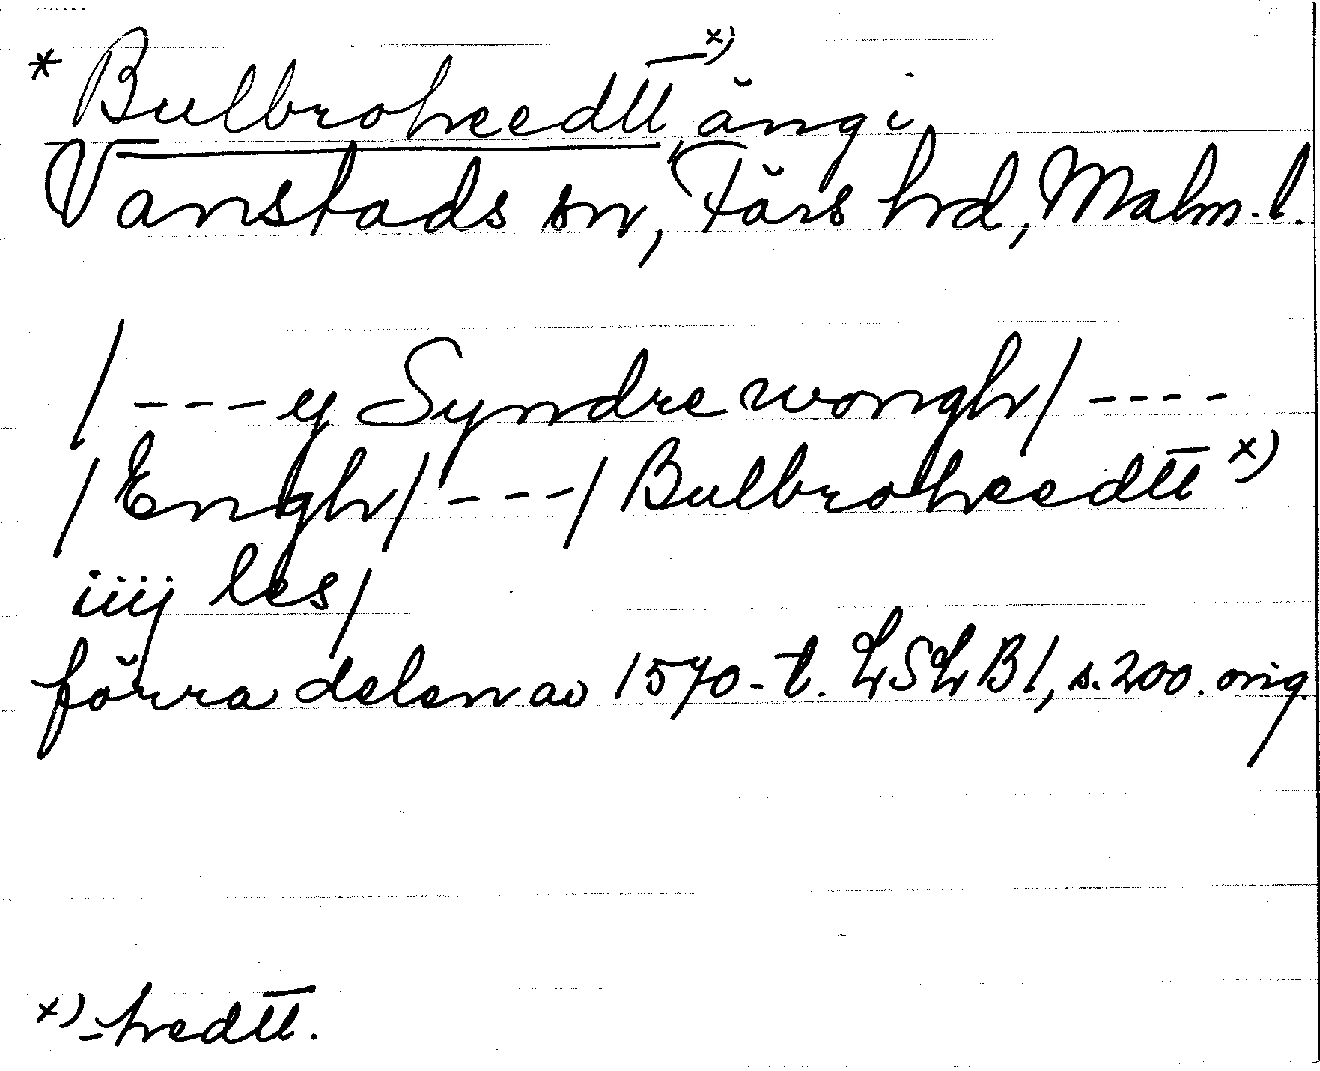 * Bulbroheedtt x) äng i
Vanstads sn, Färs hrd, Malm. l.
/ - - - ij Syndre wongh / - - - -
/ Engh / - - - / Bulbroheedtt x)
iiij les /
förra delen av 1570-t. LSLB 1, s. 200. orig.
x) -hedtt.